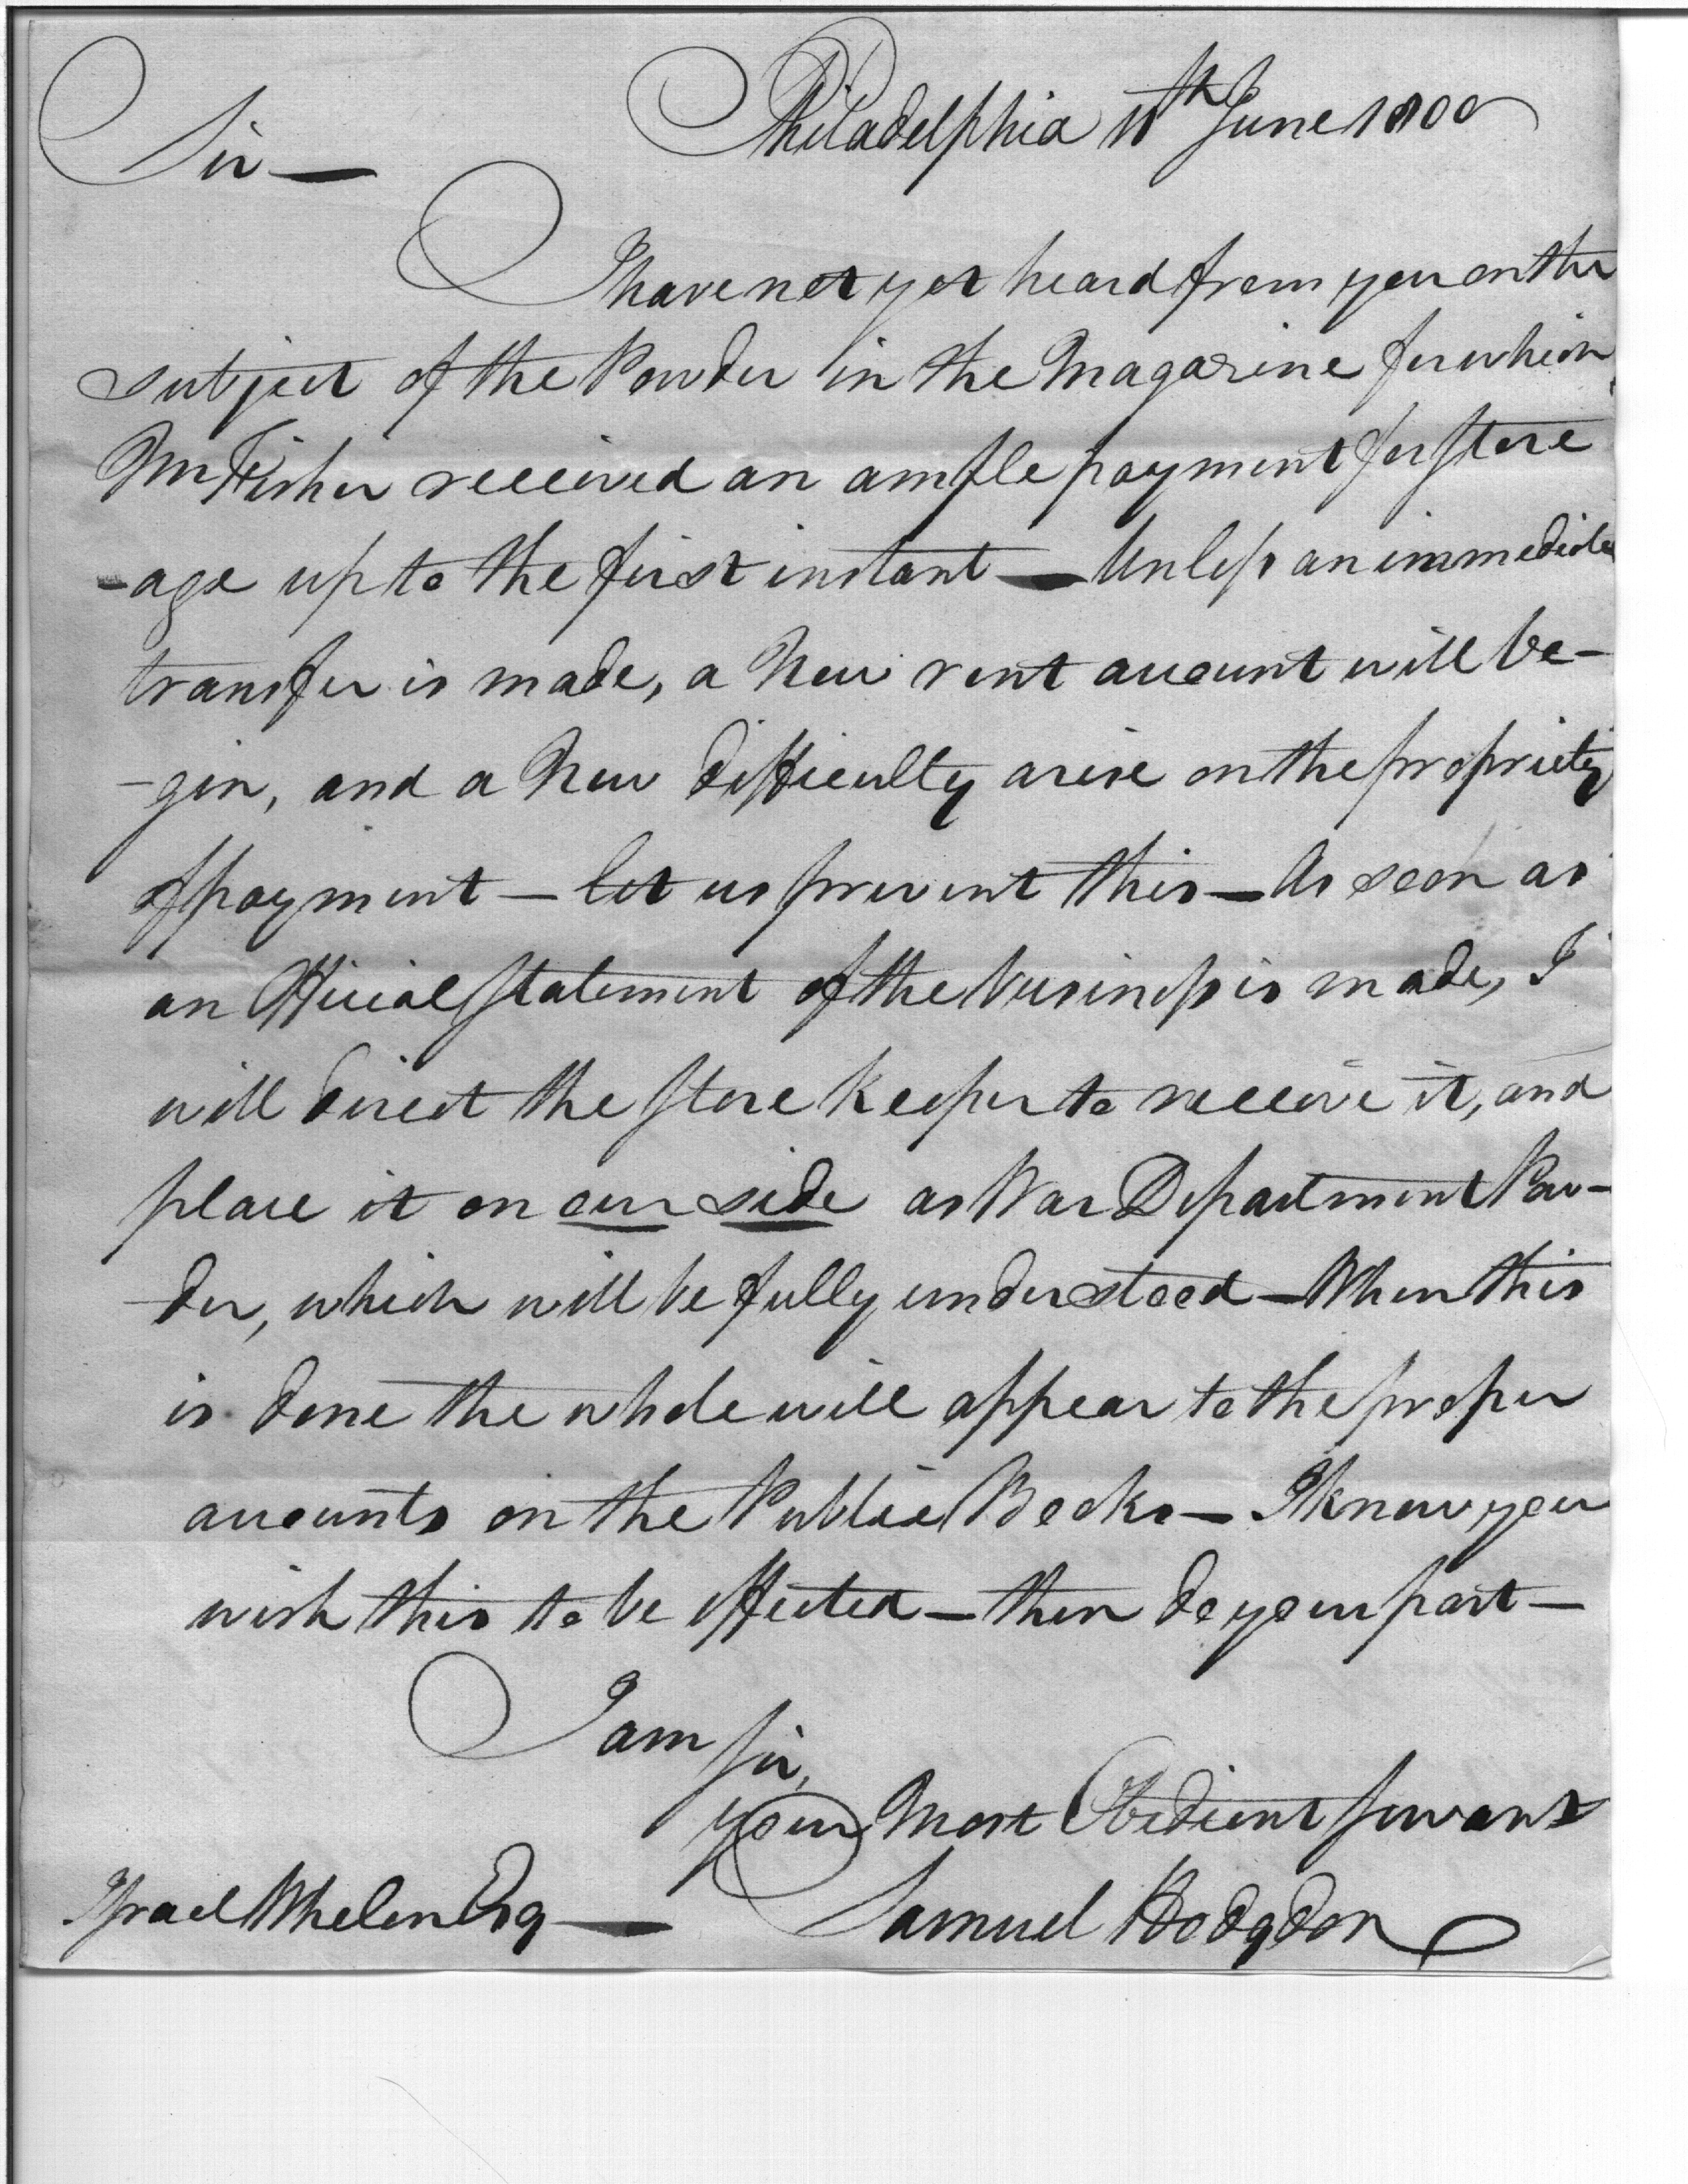 Philadelphia 11th June 1800
Sir —
I have not yet heard from you on the
subject of the Powder in the Magazine for which
Mr Fisher received an ample payment for stor
-age up to the first instant — Unless an immediate
transfer is made, a New rent account will be-
-gin, and a New difficulty arise on the propriety
of payment — let us prevent this — As soon as
an Official statement of the business is made, I
will direct the store Keeper to receive it, and
place it on our side as War Department Pow-
-der, which will be fully understood — When this
is done the whole will appear to the proper
accounts on the Public Books — I know you
wish this to be effected — then do your part —
I am Sir,
your Most Obedient servant
Samuel Hodgdon
Israel Whelen Esq —